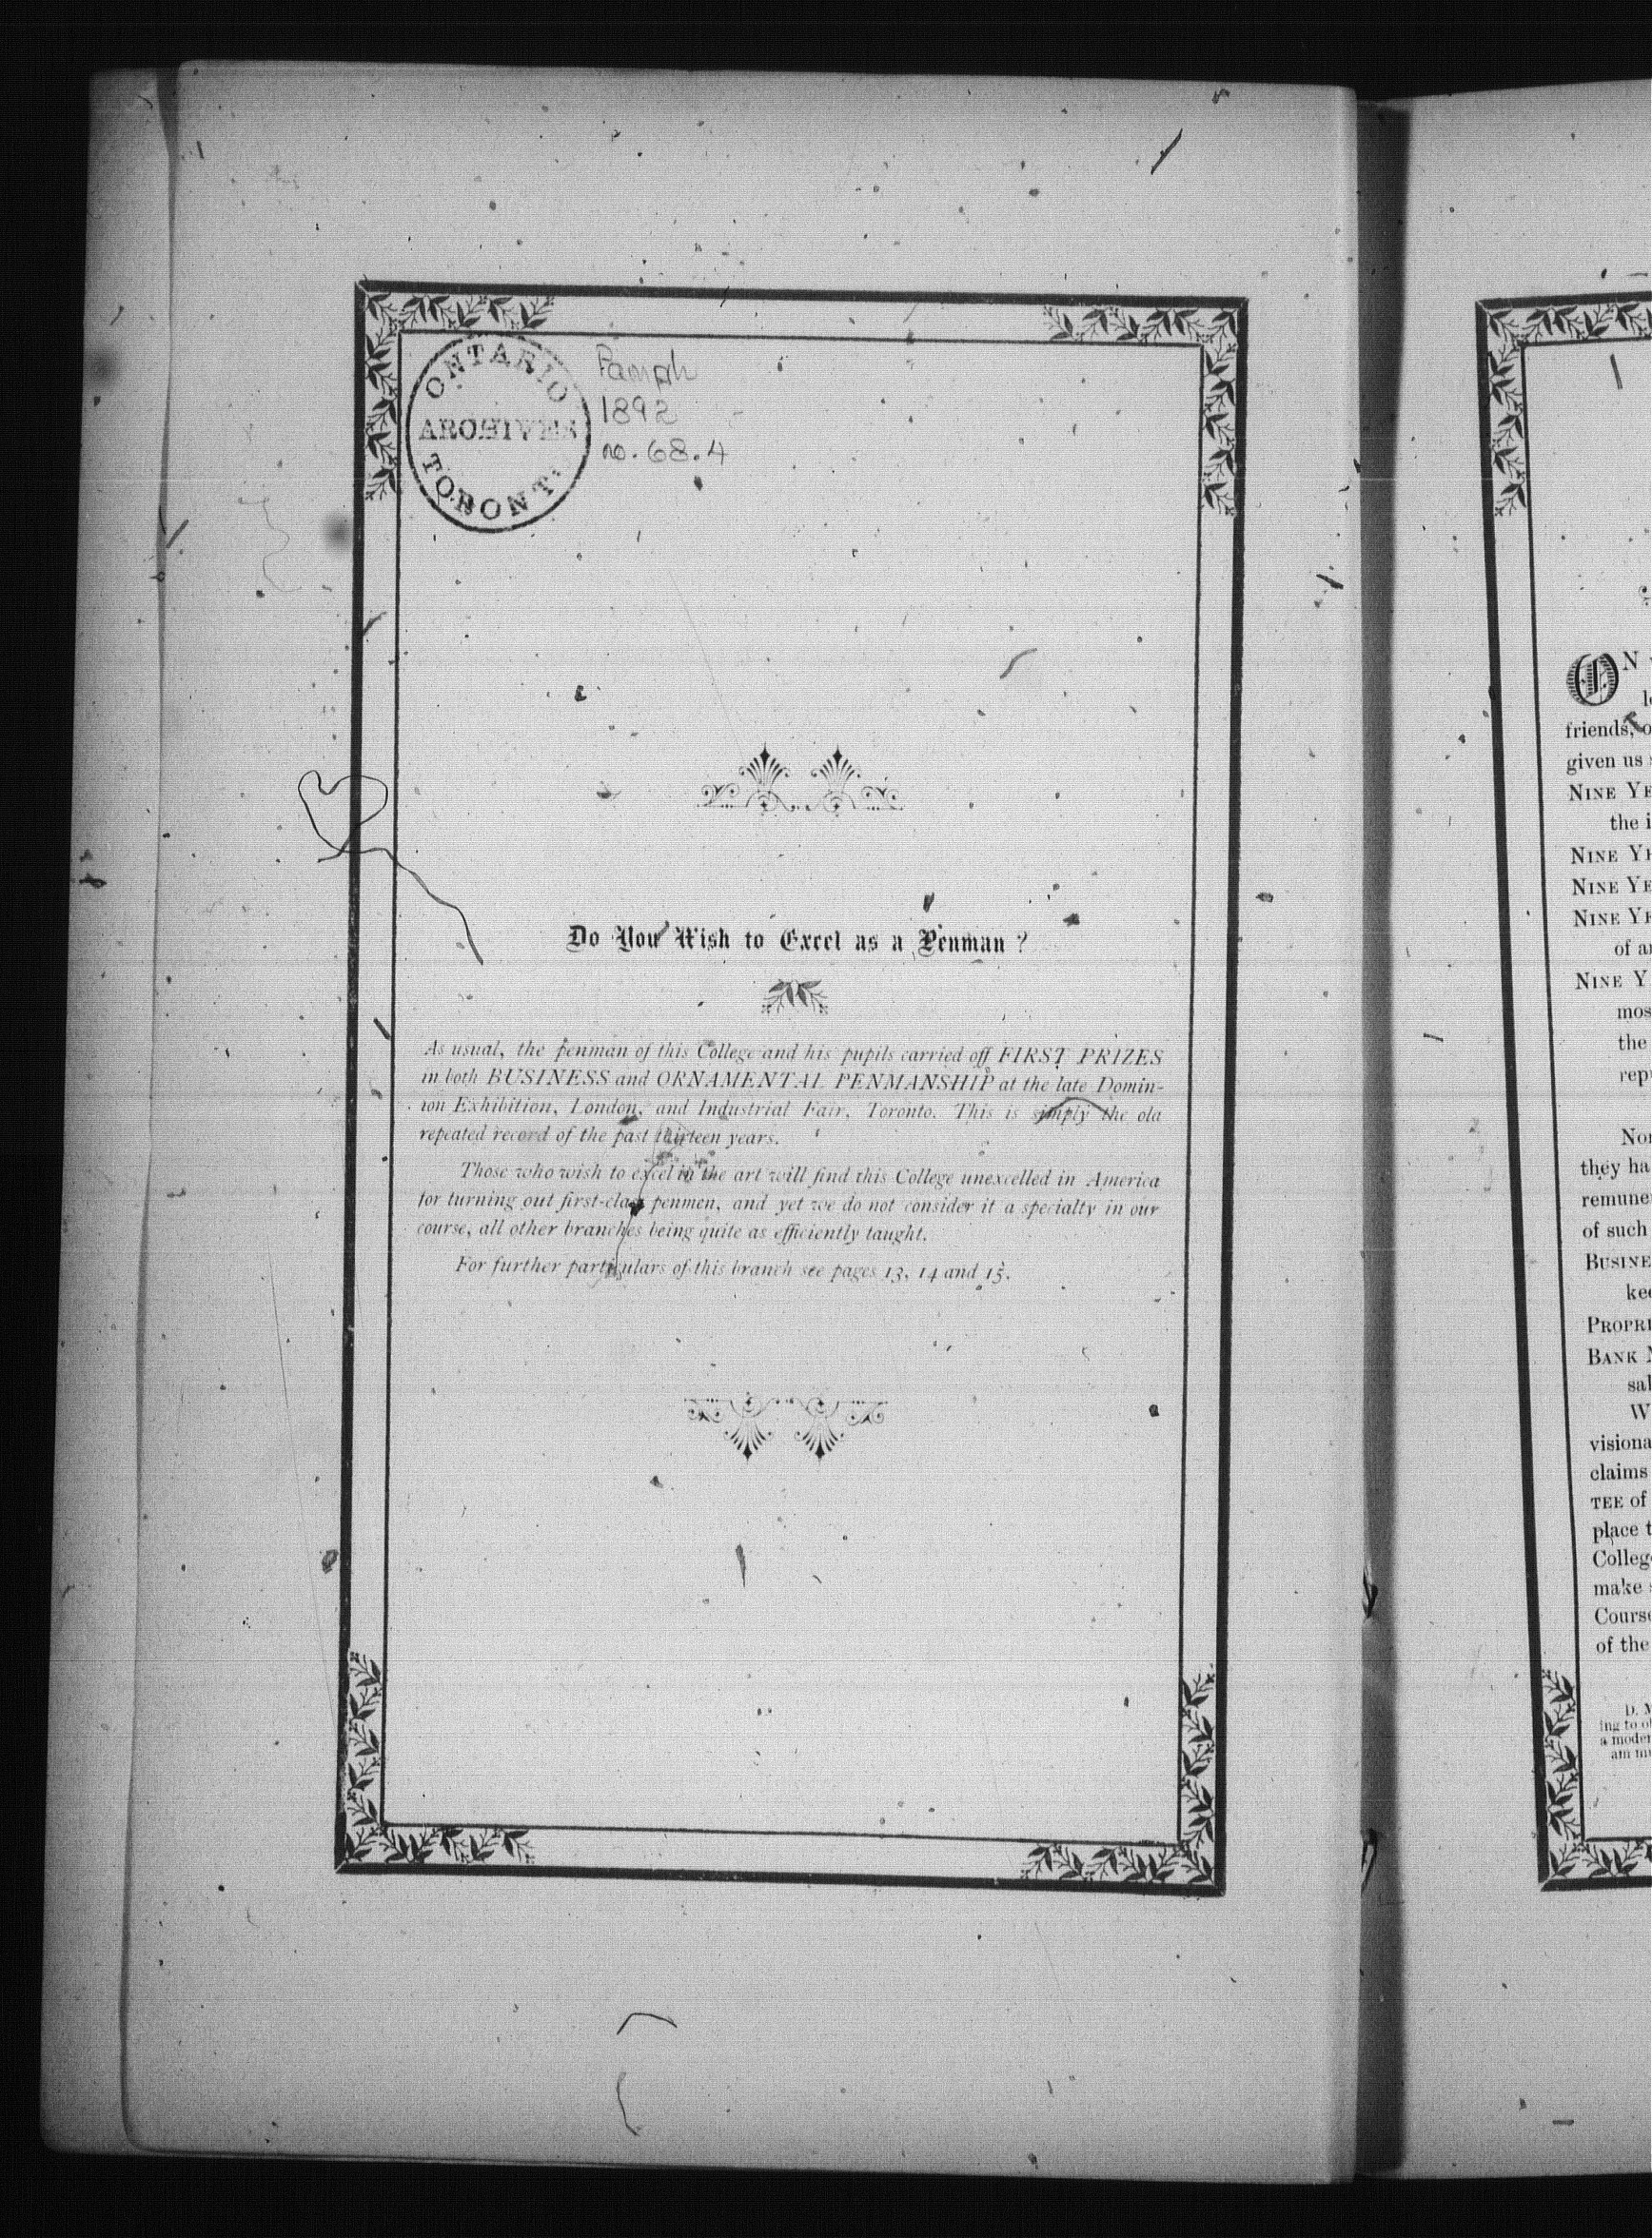 ONTARIO
ARCHIVES
TORONT
Pamph
1892
no. 68.4
Do You Wish to Excel as a Penman ?
As usual, the penman of this College and his pupils carried off FIRST PRIZES
in both BUSINESS and ORNAMENTAL PENMANSHIP at the late Domin-
ion Exhibition, London, and Industrial Fair, Toronto. This is simply the old
repeated record of the past thirteen years.
Those who wish to excel in the art will find this College unexcelled in America
for turning out first-class penmen, and yet we do not consider it a specialty in our
course, all other branches being quite as efficiently taught.
For further particulars of this branch see pages 13, 14 and 15.
ON
friends,
given us
NINE YE
the i
NINE YE
NINE YE
NINE YE
of a
NINE Y
mos
the
rep
Nor
they ha
remune
of such
BUSINE
kee
PROPRI
BANK
sal
W
visiona
claims
TEE of
place t
Colleg
make
Cours
of the
D. M
ing to o
a moder
am in